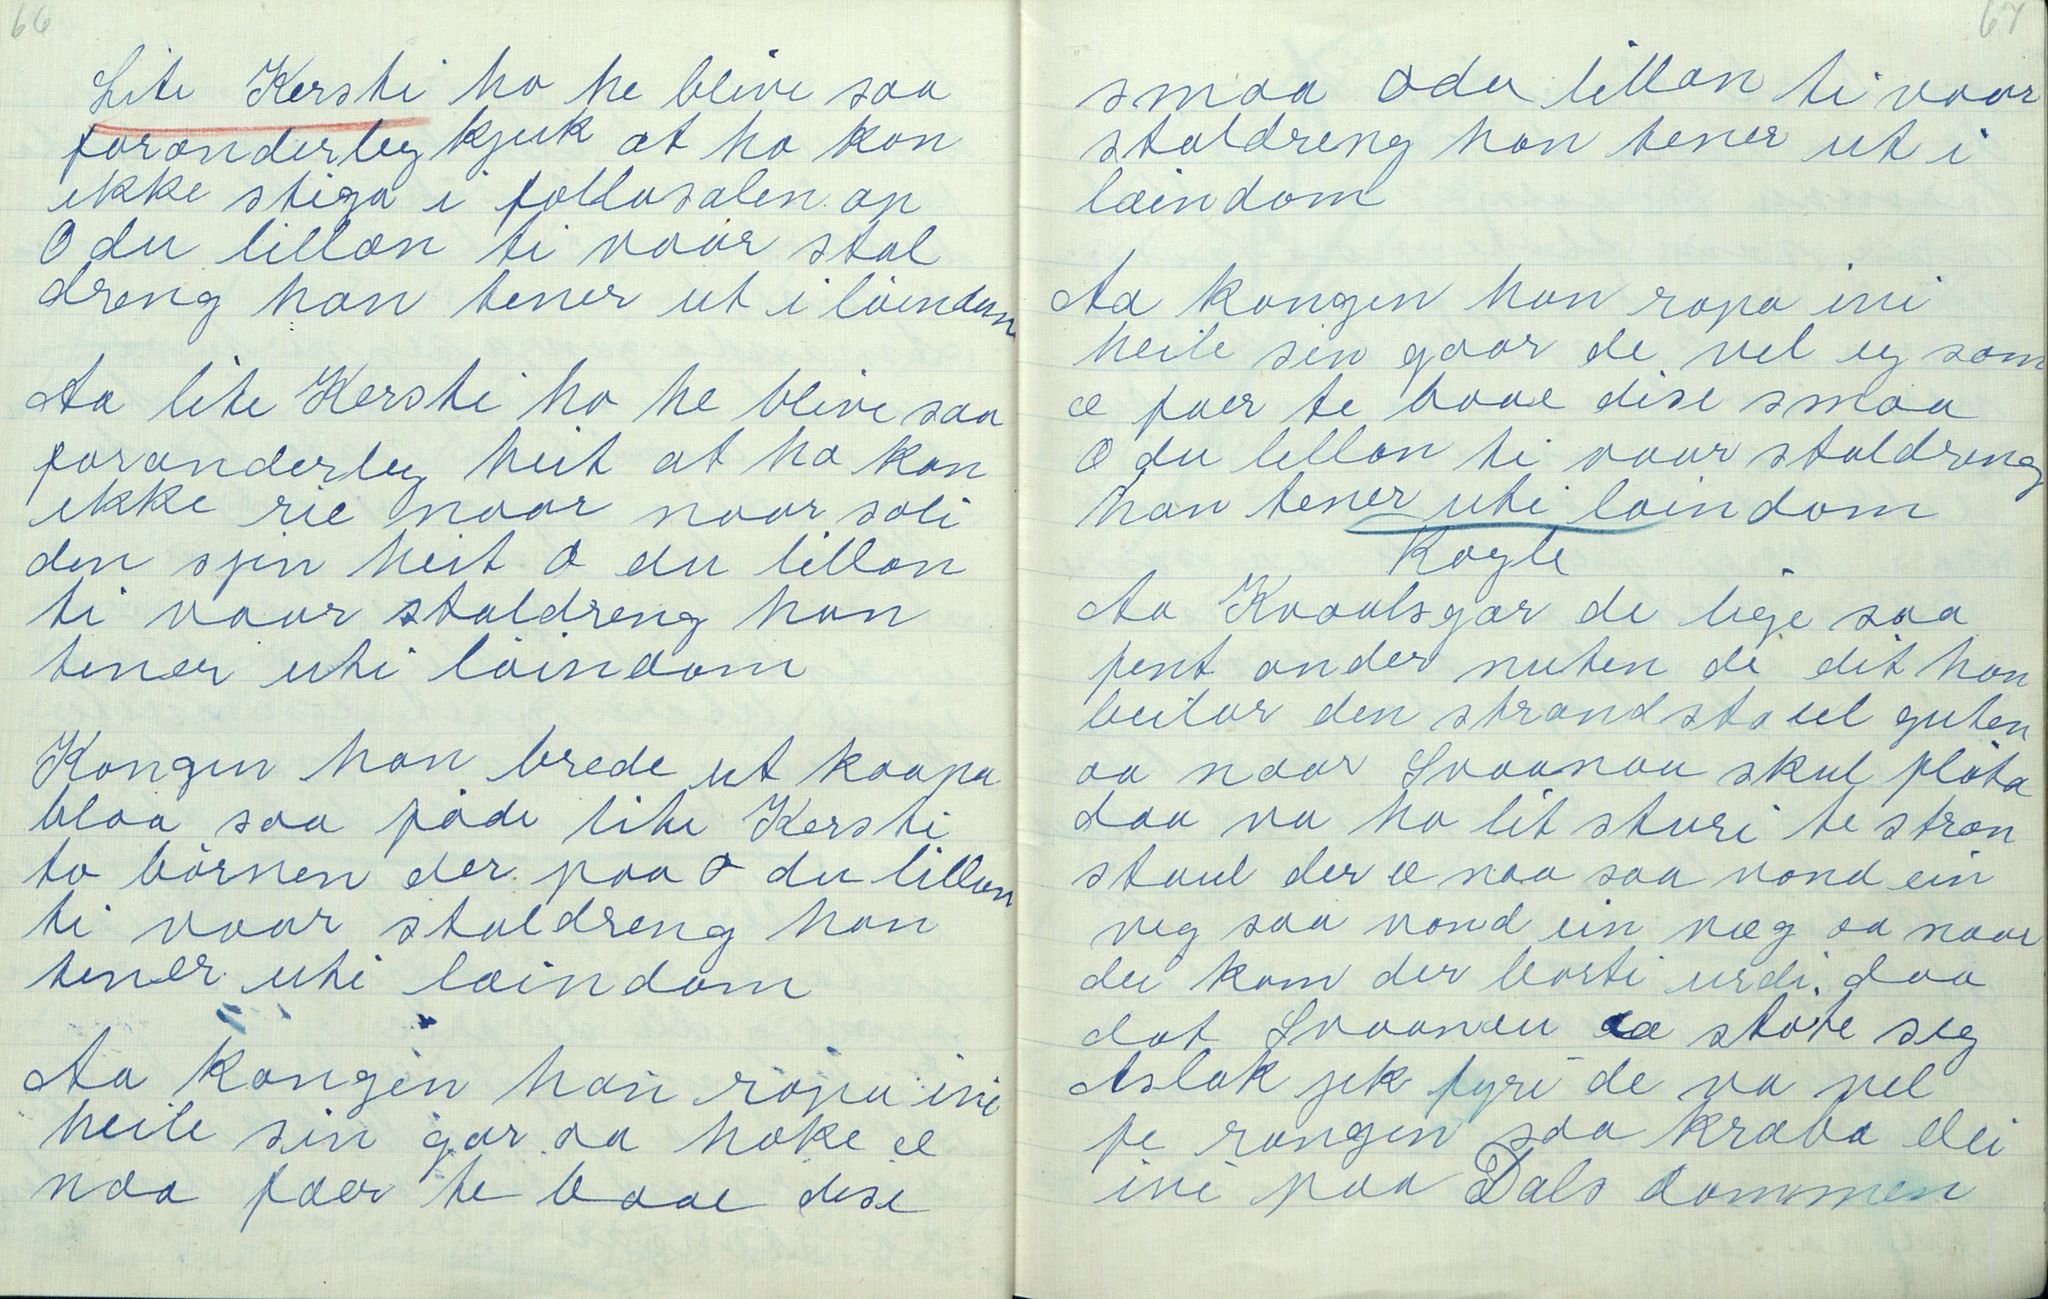 66
Lite Kersti ho he blive saa
foranderleg kjuk at ho kan
ikke stiga i follasalen op
O du lillan ti vaar stal
dreng han tener ut i löindom
Aa lite Kersti ho he blive saa
foranderleg heit at ho kan
ikke rie naar naar soli
den sjin heit O du lillan
ti vaar staldreng han
tener uti löindom
Kongen han brede ut kaapa
blaa saa föde lite Kersti
to börnen der paa O du lillan
ti vaar staldreng han
tener uti læindom
Aa kongen han ropa ini
heile sin gar aa hoke æ
naa faer te baae dise
67
smaa O du lillan ti vaar
staldreng han tener ut i
læindom
Aa kongen han ropa ini
heile sin gaar de vel eg som
æ faer te baae dise smaa
O du lillan ti vaar staldreng
han tener uti löindom
Kogle
Aa Kvaalsgar de lige saa
pent onder nuten de dit han
beitar den strandstaul guten
aa naar Svaanau skul flöta
daa va ho lit sturi te stran
staul der æ naa saa vond ein
veg saa vond ein væg aa naar
dei kom der borti urdi. daa
dat Svaaneu æ støte seg
Aslak jek fyri de va vel
fe rangen saa kraba dei
ini paa Dals dammen